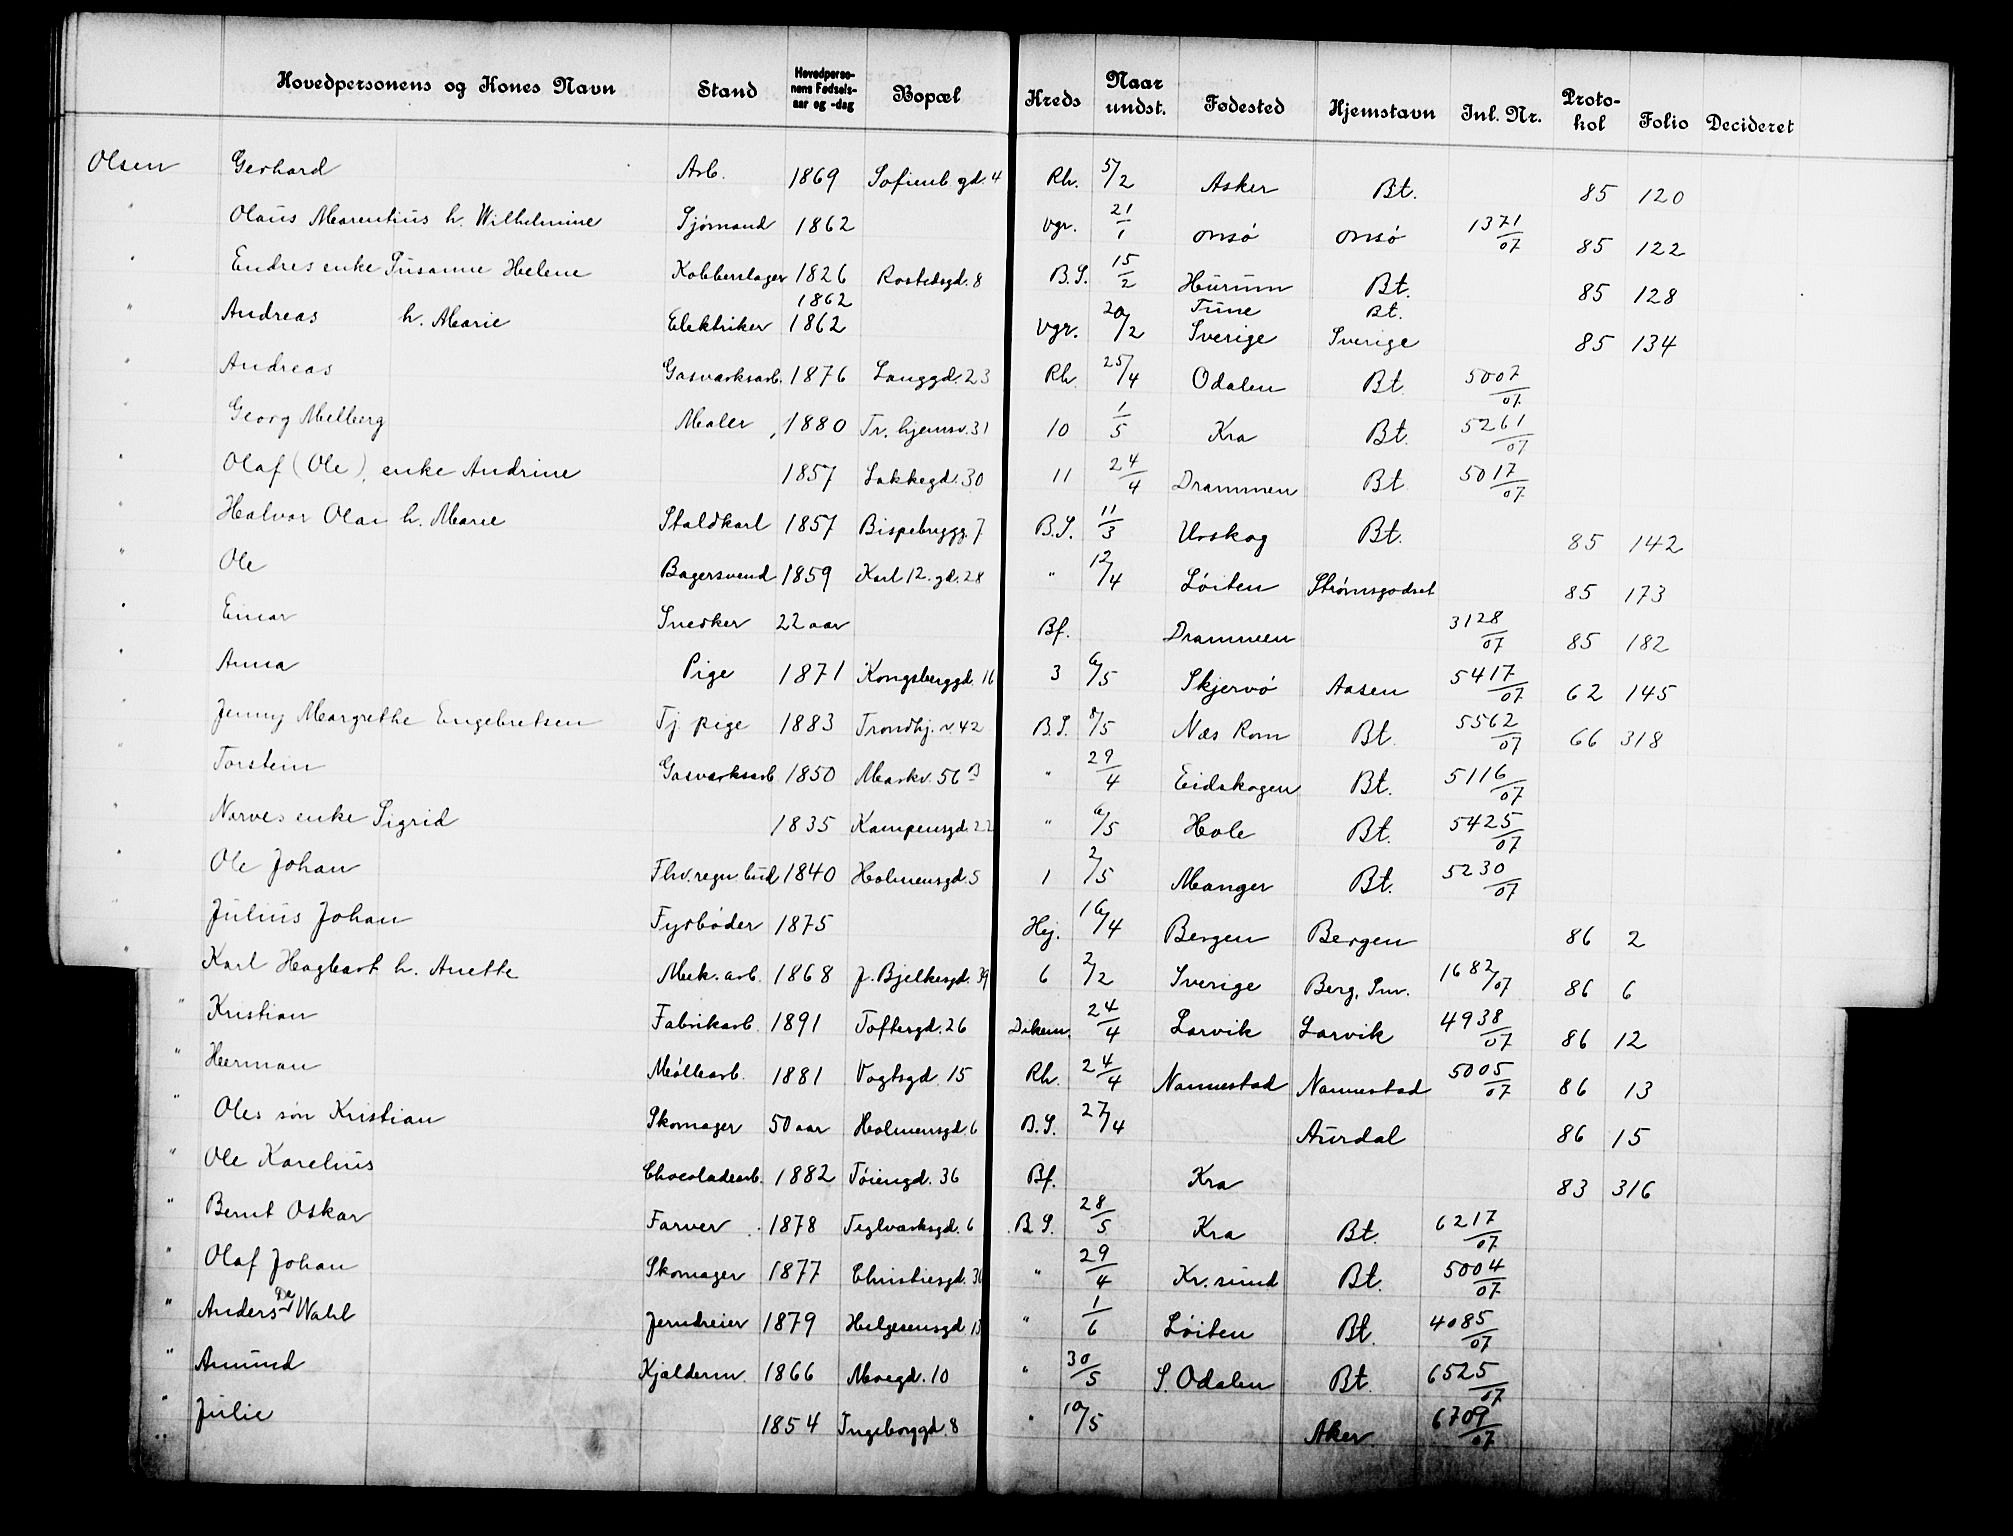 Hovedpersonens og Kones Navn Stand Hovedpersonens Fødselsaar og -dag Bopæl Kreds Naar undst. Fødested Hjemstavn Inl. Nr. Protokol Folio Decideret
Olsen Gerhard Arb. 1869 Sofienb.gd. 4 Rh. 5/2 Asker Bt. 85 120
" Olaus Marentius h. Wilhelmine Sjømand 1862 Vgr. 21/1 Onsø Onsø 1371/07 85 122
" Endres enke Susanne Helene Kobberslager 1826 Rostedsgd. 8 B.S. 15/2 Hurum Bt. 85 128
1862 Tune Bt.
" Andreas h. Marie Elektriker 1862 Vgr. 20/2 Sverige Sverige 85 134
" Andreas Gasværksarb. 1876 Langgd. 23 Rh. 25/4 Odalen Bt. 5007/07
Georg Melberg Maler 1880 Tr. hjemsv. 31 10 1/5 Kra Bt. 5261/07
" Olaf (Ole), enke Andrine 1857 Lakkegd. 30 11 24/4 Drammen Bt. 5017/07
" Halvor Olai h. Marie Staldkarl 1857 Bispebrygg. 7 B.S. 11/3 Urskog Bt. 85 142
" Ole Bagersvend 1859 Karl 12. gd. 28 " 12/4 Løiten Strømsgodset 85 173
" Einar Snedker 22 aar Bf. Drammen 3128/07 85 182
" Anna Pige 1871 Kongsberggd. 16 3 6/5 Skjervø Aasen 5417/07 62 145
" Jenny Margrethe Engebretsen Tj. pige 1883 Trondhj. v. 42 B.S. 8/5 Næs Rom Bt. 5562/07 66 318
" Torstein Gasværksarb. 1850 Markv. 56 B " 29/4 Eidskogen Bt. 5116/07
" Narves enke Sigrid 1835 Kampensgd. 22 " 6/5 Hole Bt. 5425/07
" Ole Johan Fhv. regn. bud 1840 Holmensgd. 5 1 2/5 Manger Bt. 5230/07
" Julius Johan Fyrbøder 1875 Hej. 16/4 Bergen Bergen 86 2
" Karl Hagbart h. Anette Mek. arb. 1868 J. Bjelkesgd. 39 6 2/2 Sverige Berg, Smr. 1682/07 86 6
" Kristian Fabrikarb. 1891 Toftesgd. 26 Dikem. 24/4 Larvik Larvik 4938/07 86 12
" Herman Møllearb. 1881 Vogtsgd. 15 Rh. 24/4 Nannestad Nannestad 5005/07 86 13
" Oles søn Kristian Skomager 50 aar Holmensgd. 6 B.S. 27/4 Aurdal 86 15
" Ole Karelius Chocoladearb. 1882 Tøiengd. 36 Bf. Kra 83 316
" Bernt Oskar Farver 1878 Teglværksgd. 6 B.S. 28/5 Kra Bt. 6217/07
" Olaf Johan Skomager 1877 Christiesgd. 30 " 29/4 Kr. sund Bt. 5004/07
" Anders De Wahl Jerndreier 1879 Helgesensgd 13 " 1/6 Løiten Bt. 4085/07
" Amund Kjælderm. 1866 Moegd. 10 " 30/5 S. Odalen Bt. 6525/07
" Julie 1854 Ingeborggd. 8 " 10/5 Aker 6709/07